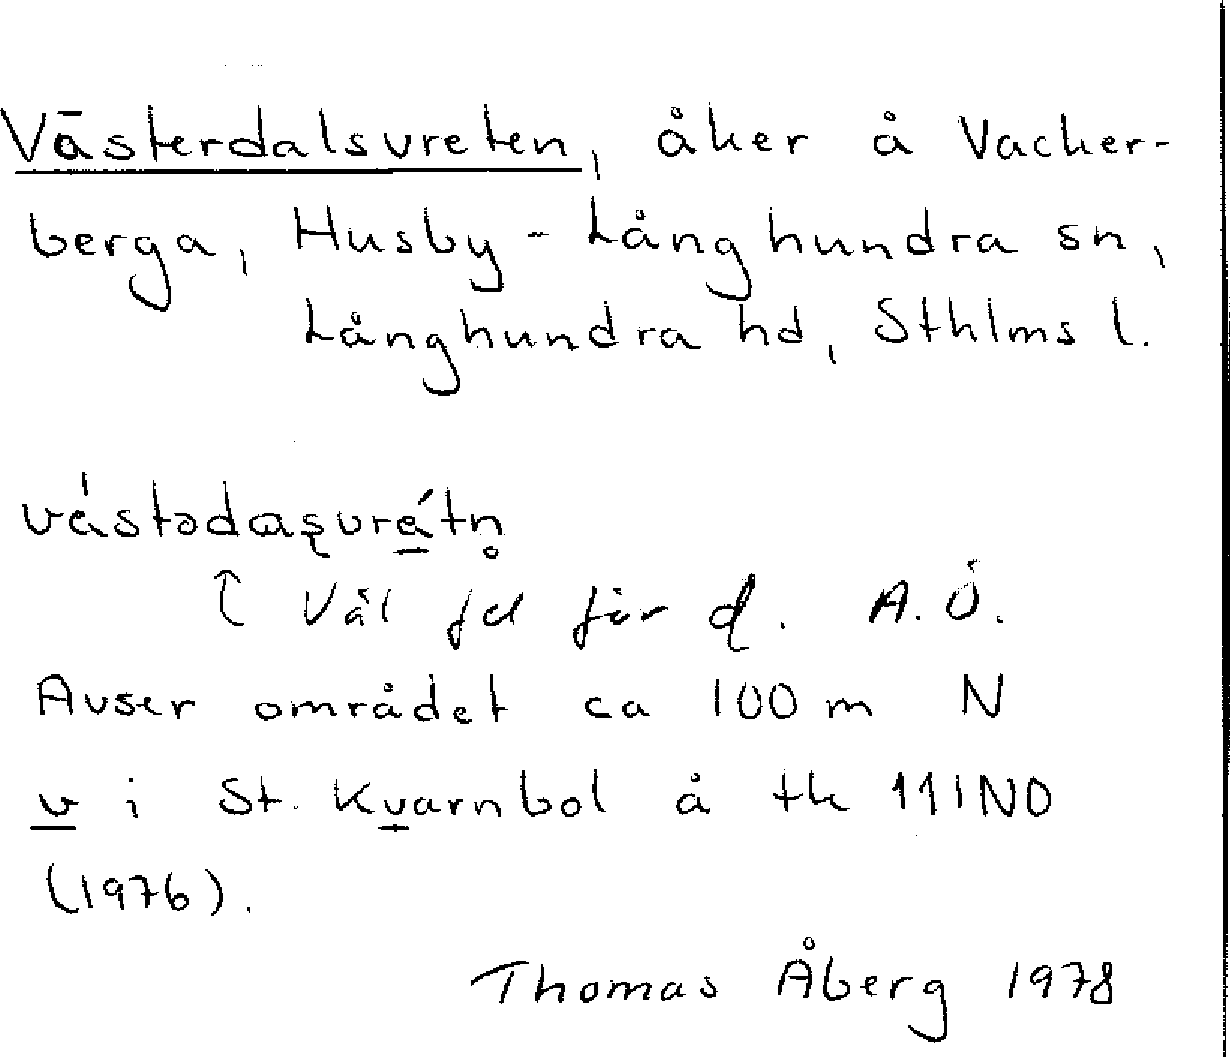 Västerdalsvreten, åker å Vacker-
berga, Husby-Långhundra sn,
Långhundra hd, Sthlms l.
västədaʂvrätn̥
↑ Väl fel för ɖ. A.Ö.
Avser området ca 100 m N
v i St. Kvarnbol å tk 11INO
(1976).
Thomas Åberg 1978